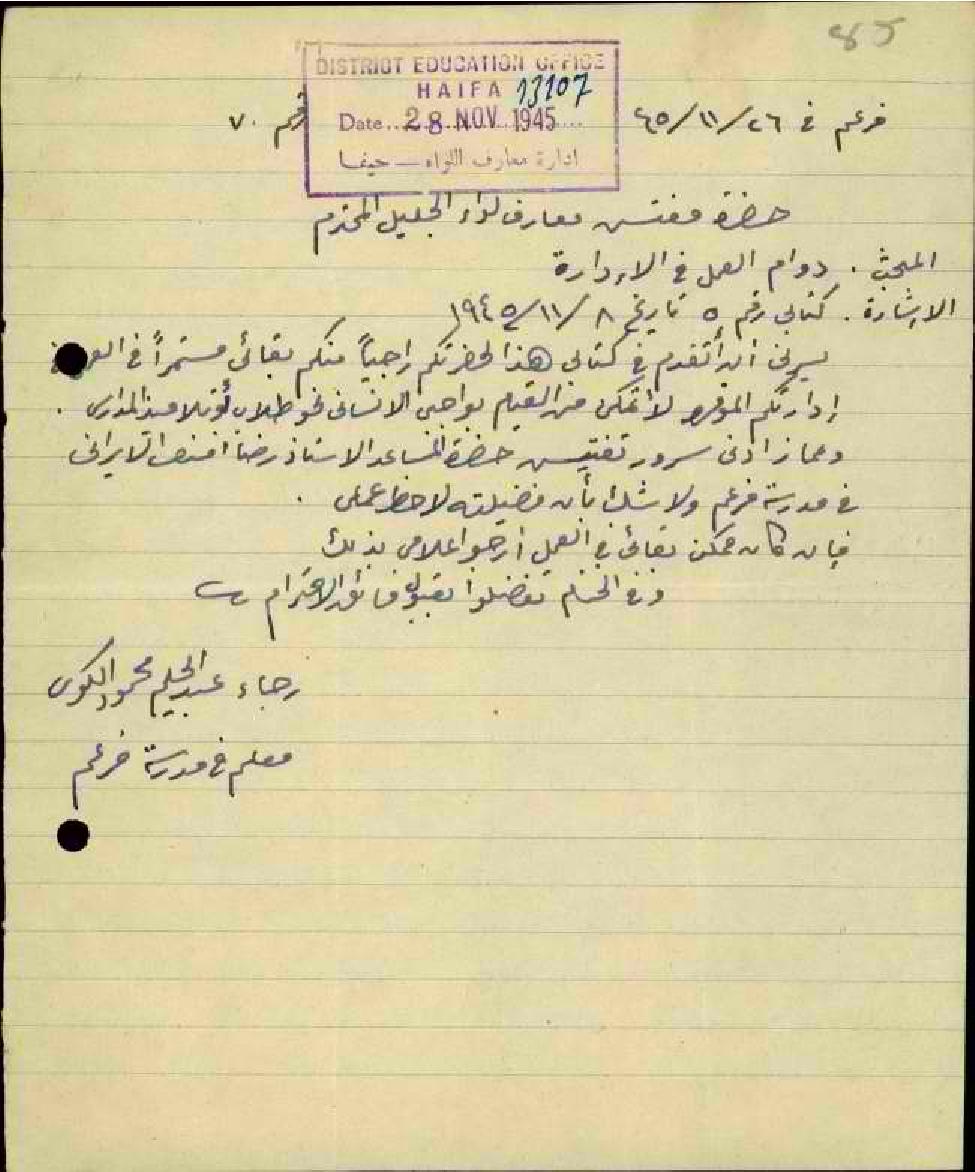 85
DISTRICT EDUCATION OFFICE
HAIFA 13107
Date 28 NOV 1945
ادارة معارف اللواء - حيفا
فرعم في ٢٦/١١/٤٥ رقم ٧٠
حضرة مفتش معارف لواء الجليل المحترم
المبحث . دوام العمل في الإدارة
الإشارة . كتابي رقم ٥ تاريخ ٨/١١/١٩٤٥
يسرني أن أتقدم في كتابي هذا لحضرتكم راجياً منكم بقائي مستمراً في
إدارتكم الموقرة لأتمكن من القيام بواجبي الانساني نحو طلاب أو تلاميذ المدارس .
ومما زادني سرور تفتيش حضرة المساعد الاستاذ رضا أفندي الايراني
في مدرسة فرعم ولا شك بأن فضيلته لاحظ عملي .
فإن كان ممكن بقائي في العمل أرجو اعلامي بذلك
وفي الختام تفضلوا بقبول فائق الاحترام
رجاء عبد الحليم محمود
معلم في مدرسة فرعم